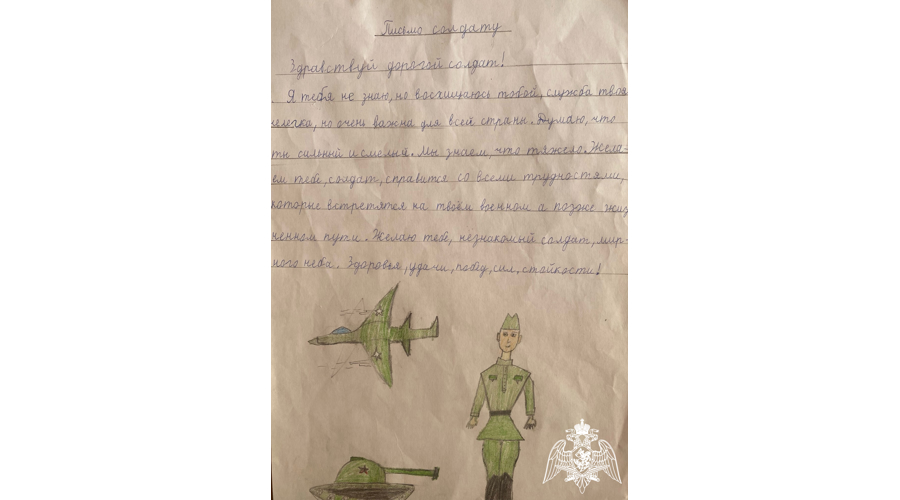 Письмо солдату
Здравствуй дорогой солдат!
Я тебя не знаю, но восхищаюсь тобой, служба твоя
нелегка, но очень важна для всей страны. Думаю, что
ты сильный и смелый. Мы знаем, что тяжело. Жела-
ем тебе, солдат, справится со всеми трудностями,
которые встретятся на твоём военном а позже жиз
ненном пути. Желаю тебе, незнакомый солдат, мир-
ного неба. Здоровья, удачи, побед, сил, стойкости!